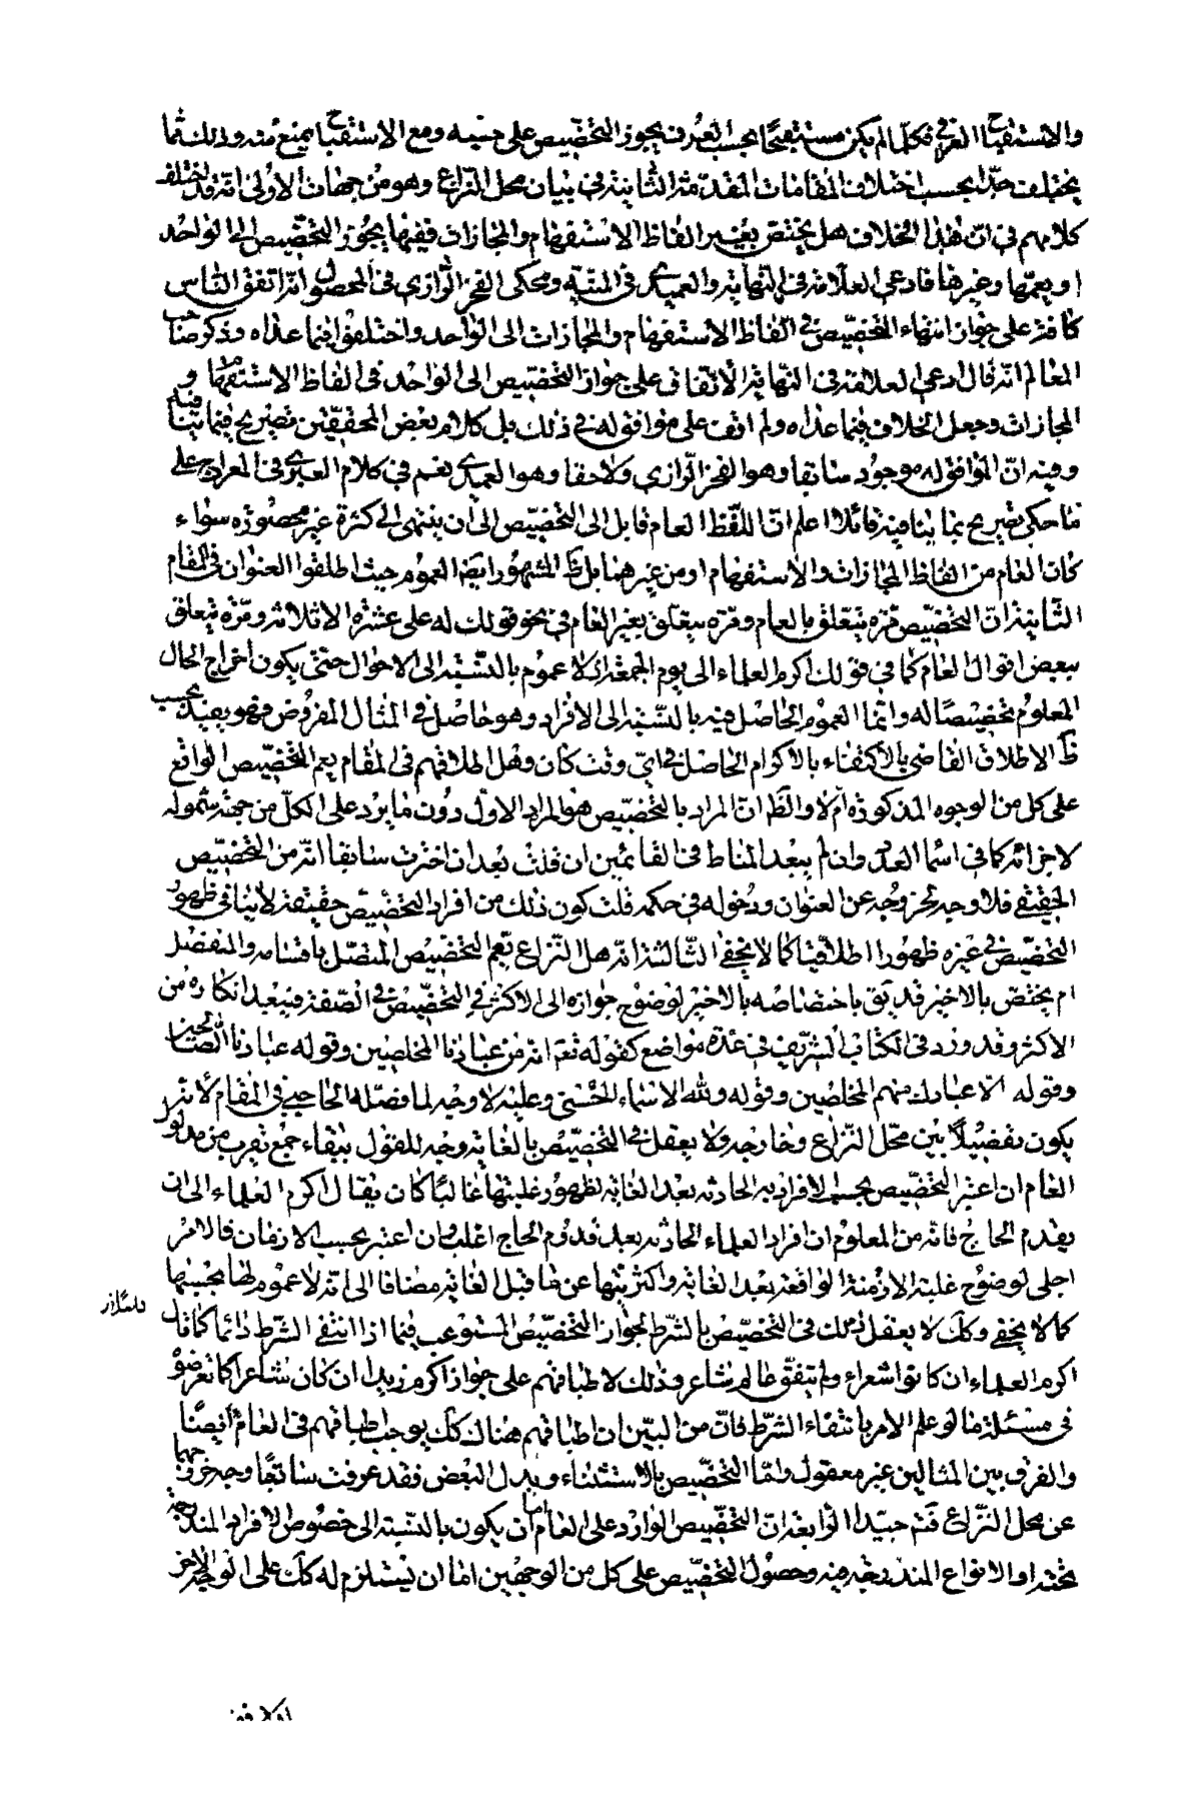 والاستقباح العرفي فكلما لم يكن مستقبحا بحسب العرف يجوز التخصيص على حسبه ومع الاستقباح يمنع منه وذلك مما
يختلف جدا بحسب اختلاف المقامات المقدمة الثانية في بيان محل النزاع وهو من جهات الاولى انه قد اختلف
كلامهم في ان هذا الخلاف هل يختص بغير الفاظ الاستفهام والمجازات ففيها يجوز التخصيص الى الواحد
او يعمها وغيرها فادعى العلامة في النهاية والعميدي في المنية ومحكي الفخر الرازي في المحصول انه اتفق الناس
كافة على جواز انتهاء التخصيص في الفاظ الاستفهام والمجازات الى الواحد واختلفوا فيما عداه وذكر صاحب
المعالم انه قال ادعى العلامة في النهاية الاتفاق على جواز التخصيص الى الواحد في الفاظ الاستفهام و
المجازات وجعل الخلاف فيما عداه ولم اقف على موافق له في ذلك بل كلام بعض المحققين تصريح فيما ينافيه
وفيه ان الموافق له موجود سابقا وهو الفخر الرازي ولاحقا وهو العميدي نعم في كلام العبري في المعراج على
ما حكي تصريح بما ينافيه قائلا اعلم ان اللفظ العام قابل الى التخصيص الى ان ينتهي الى كثرة غير محصورة سواء
كان العام من الفاظ المجازات والاستفهام او من غيرهما بل ظ المشهور ايضا العموم حيث اطلقوا العنوان في المقام
الثانية ان التخصيص مرة يتعلق بالعام ومرة يتعلق بغير العام في نحو قولك له علي عشرة الا ثلاثة ومرة يتعلق
ببعض احوال العام كما في قولك اكرم العلماء الى يوم الجمعة اذ لا عموم بالنسبة الى الاحوال حتى يكون اخراج الحال
المعلوم تخصيصا له وانما العموم الحاصل فيه بالنسبة الى الافراد وهو حاصل في المثال المفروض فهو يفيد بحسب
ظ الاطلاق القاضي بالاكتفاء بالاكرام الحاصل في اي وقت كان وهل اطلاقهم في المقام يعم التخصيص الواقع
على كل من الوجوه المذكورة ام لا والظ ان المراد بالتخصيص هو المراد الاول دون ما يرد على الكل من جهة شموله
لاجزائه كما في اسماء العدد وان لم يبعد المناط في القائمين ان قلت بعد ان اخترت سابقا انه من التخصيص
الحقيقي فلا وجه لخروجه عن العنوان ودخوله في حكمه قلت كون ذلك من افراد التخصيص حقيقة لا ينافي ظهور
التخصيص في غيره ظهورا اطلاقيا كما لا يخفى الثالثة انه هل النزاع يعم التخصيص المتصل باقسامه والمنفصل
ام يختص بالاخير قد يق باختصاصه بالاخير لوضوح جوازه الى الاكثر في التخصيص في الصفة فيبعد انكاره من
الاكثر وقد ورد في الكتاب الشريف في عدة مواضع كقوله تعم انه من عبادنا المخلصين وقوله عبادنا الصالحين
وقوله الا عبادك منهم المخلصين وقوله ولله الاسماء الحسنى وعليه لا وجه لما فصله الحاجبي في المقام لانه
يكون تفصيلا بين محل النزاع وخارجه ولا يعقل في التخصيص بالغاية وجه للقول ببقاء جمع تقرب من مدلول
العام ان اعتبر التخصيص بحسب الافراد به الحادثة بعد الغاية لظهور غلبتها غالبا كان يقال اكرم العلماء الى ان
يقدم الحاج فانه من المعلوم ان افراد العلماء الحادثة بعد قدوم الحاج اغلب وان اعتبر بحسب الازمان فالامر
اجلى لوضوح غلبة الازمنة الواقعة بعد الغاية واكثريتها عن ما قبل الغاية مضافا الى انه لا عموم لها بحسبها
كما لا يخفى وكك لا يعقل ذلك في التخصيص بالشرط لجواز التخصيص المستوعب فيما اذا انتفى الشرط دائما كما قال
اكرم العلماء ان كانوا شعراء ولم يتفق عالم شاعر وذلك لاطباقهم على جواز اكرم زيدا ان كان شاعرا كما تعرضوا
في مسئلة ما لو علم الامر بانتفاء الشرط فان من البين ان اطباقهم هناك كك يوجب اطباقهم في العام ايضا
والفرق بين المثالين غير معقول واما التخصيص بالاستثناء وبدل البعض فقد عرفت سابقا وجه خروجهما
عن محل النزاع فتم جيدا الرابعة ان التخصيص الوارد على العام اما ان يكون بالنسبة الى خصوص الافراد المندرجة
تحته او الانواع المندرجة فيه وحصول التخصيص على كل من الوجهين اما ان يستلزم له كك على الوجه الاخر